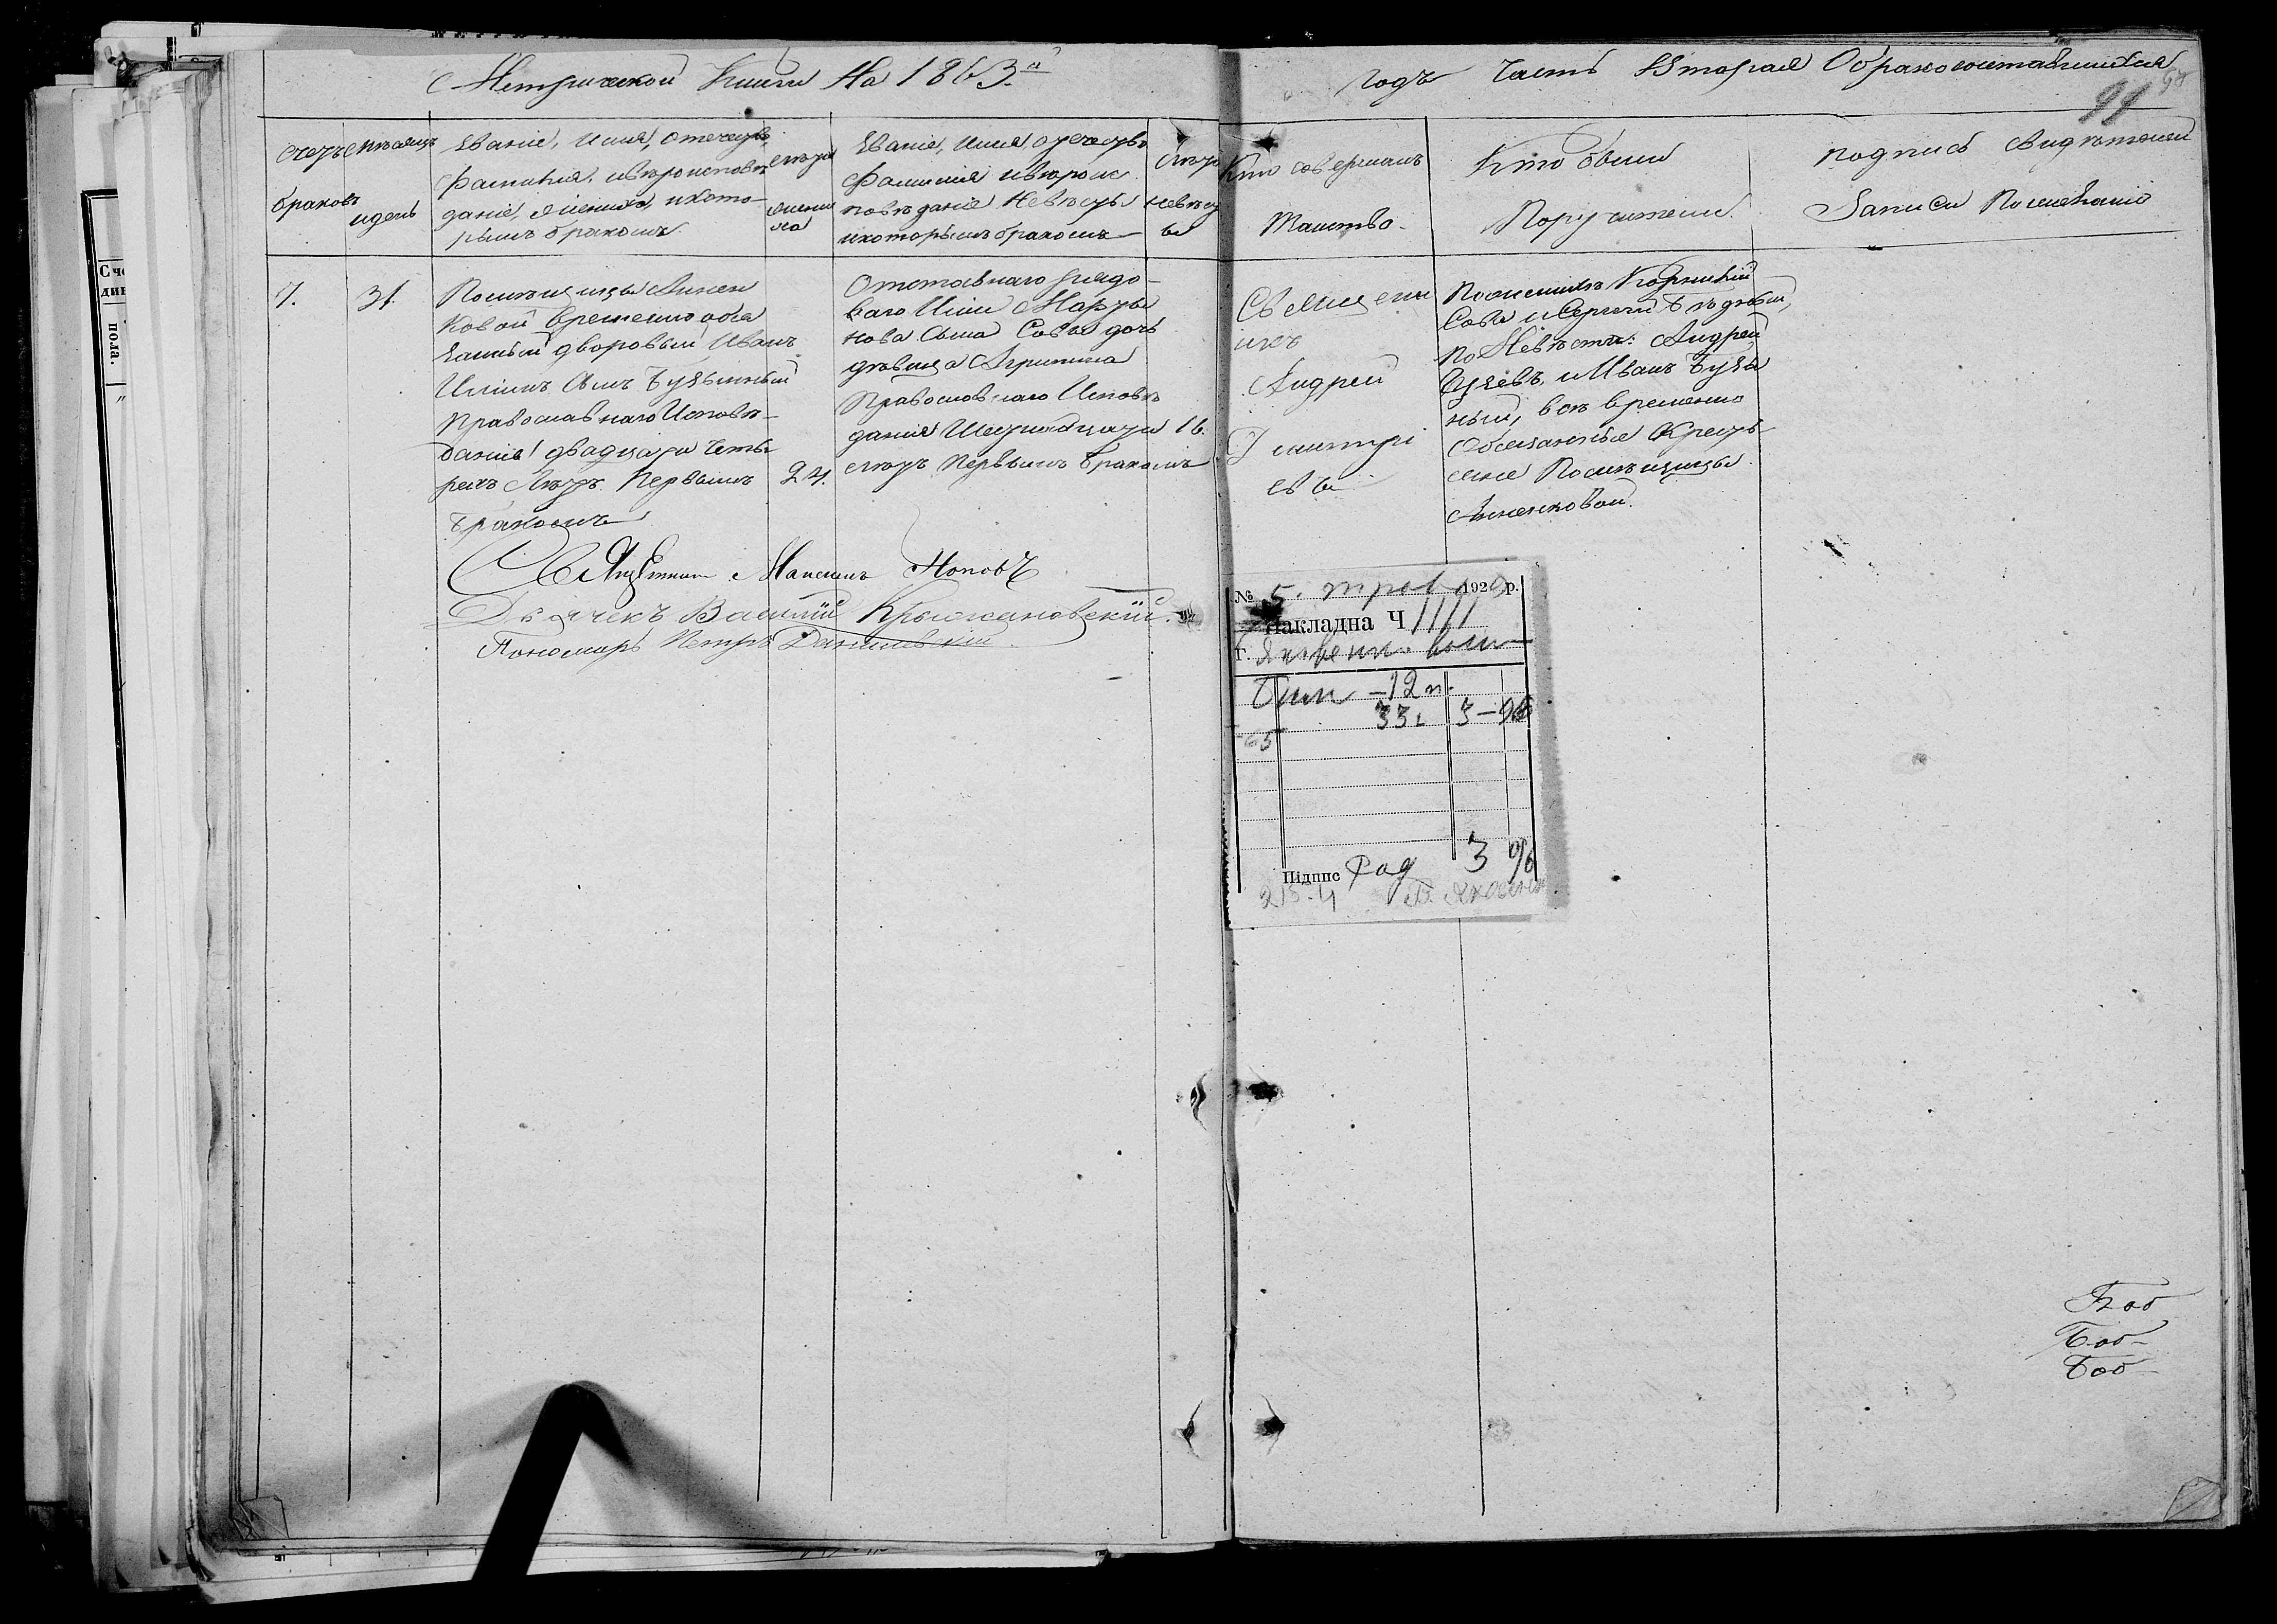 Метрической Книги На 1863-й
годъ Часть Вторая О бракосочетавшихся
91
Счетъ браковъ
Мѣсяцъ и день
Званіе, имя, отечество,
фамилія, и вѣроисповѣ-
даніе, жениха, и кото-
рымъ бракомъ
Лѣта жениха
Званіе, имя, отечество
фамилія и вѣроис
повѣданіе Невѣсты
и которымъ бракомъ
Лѣта невѣсты
Кто совершалъ
Таинство.
Кто были
Поручители.
подпись Свидѣтелей
Записи По желанію
7.
31.
Помѣщицы Аннен
ковой временно обя
занный дворовый Иванъ
Иліинъ сынъ
Православнаго Исповѣ-
данія двадцати четы
рехъ Лѣтъ Первымъ
бракомъ
24.
Отставнаго рядо-
ваго Иліи Марты
нова сына дочь
дѣвица Агрипина
Православнаго Исповѣ
данія Шестнадцати
лѣтъ Первымъ бракомъ
16.
Священ
икъ
Андрей
Дмитрі
евъ
По женихѣ
Сава и Сергій
По Невѣстѣ: Андрей
и Иванъ
ный, всѣ временно
Обязанные Кресть
яне Помѣщицы
Анненковой.
Священникъ Максимъ Поповъ
Дьячекъ Василій Крыжановскій.
Пономарь Петръ Данилевскій
№ 5. 192 р.
Накладна Ч
Г.
12 п.
33
65
Підпис
3 96
Боб
Боб
Боб
Сче
ди
пола.